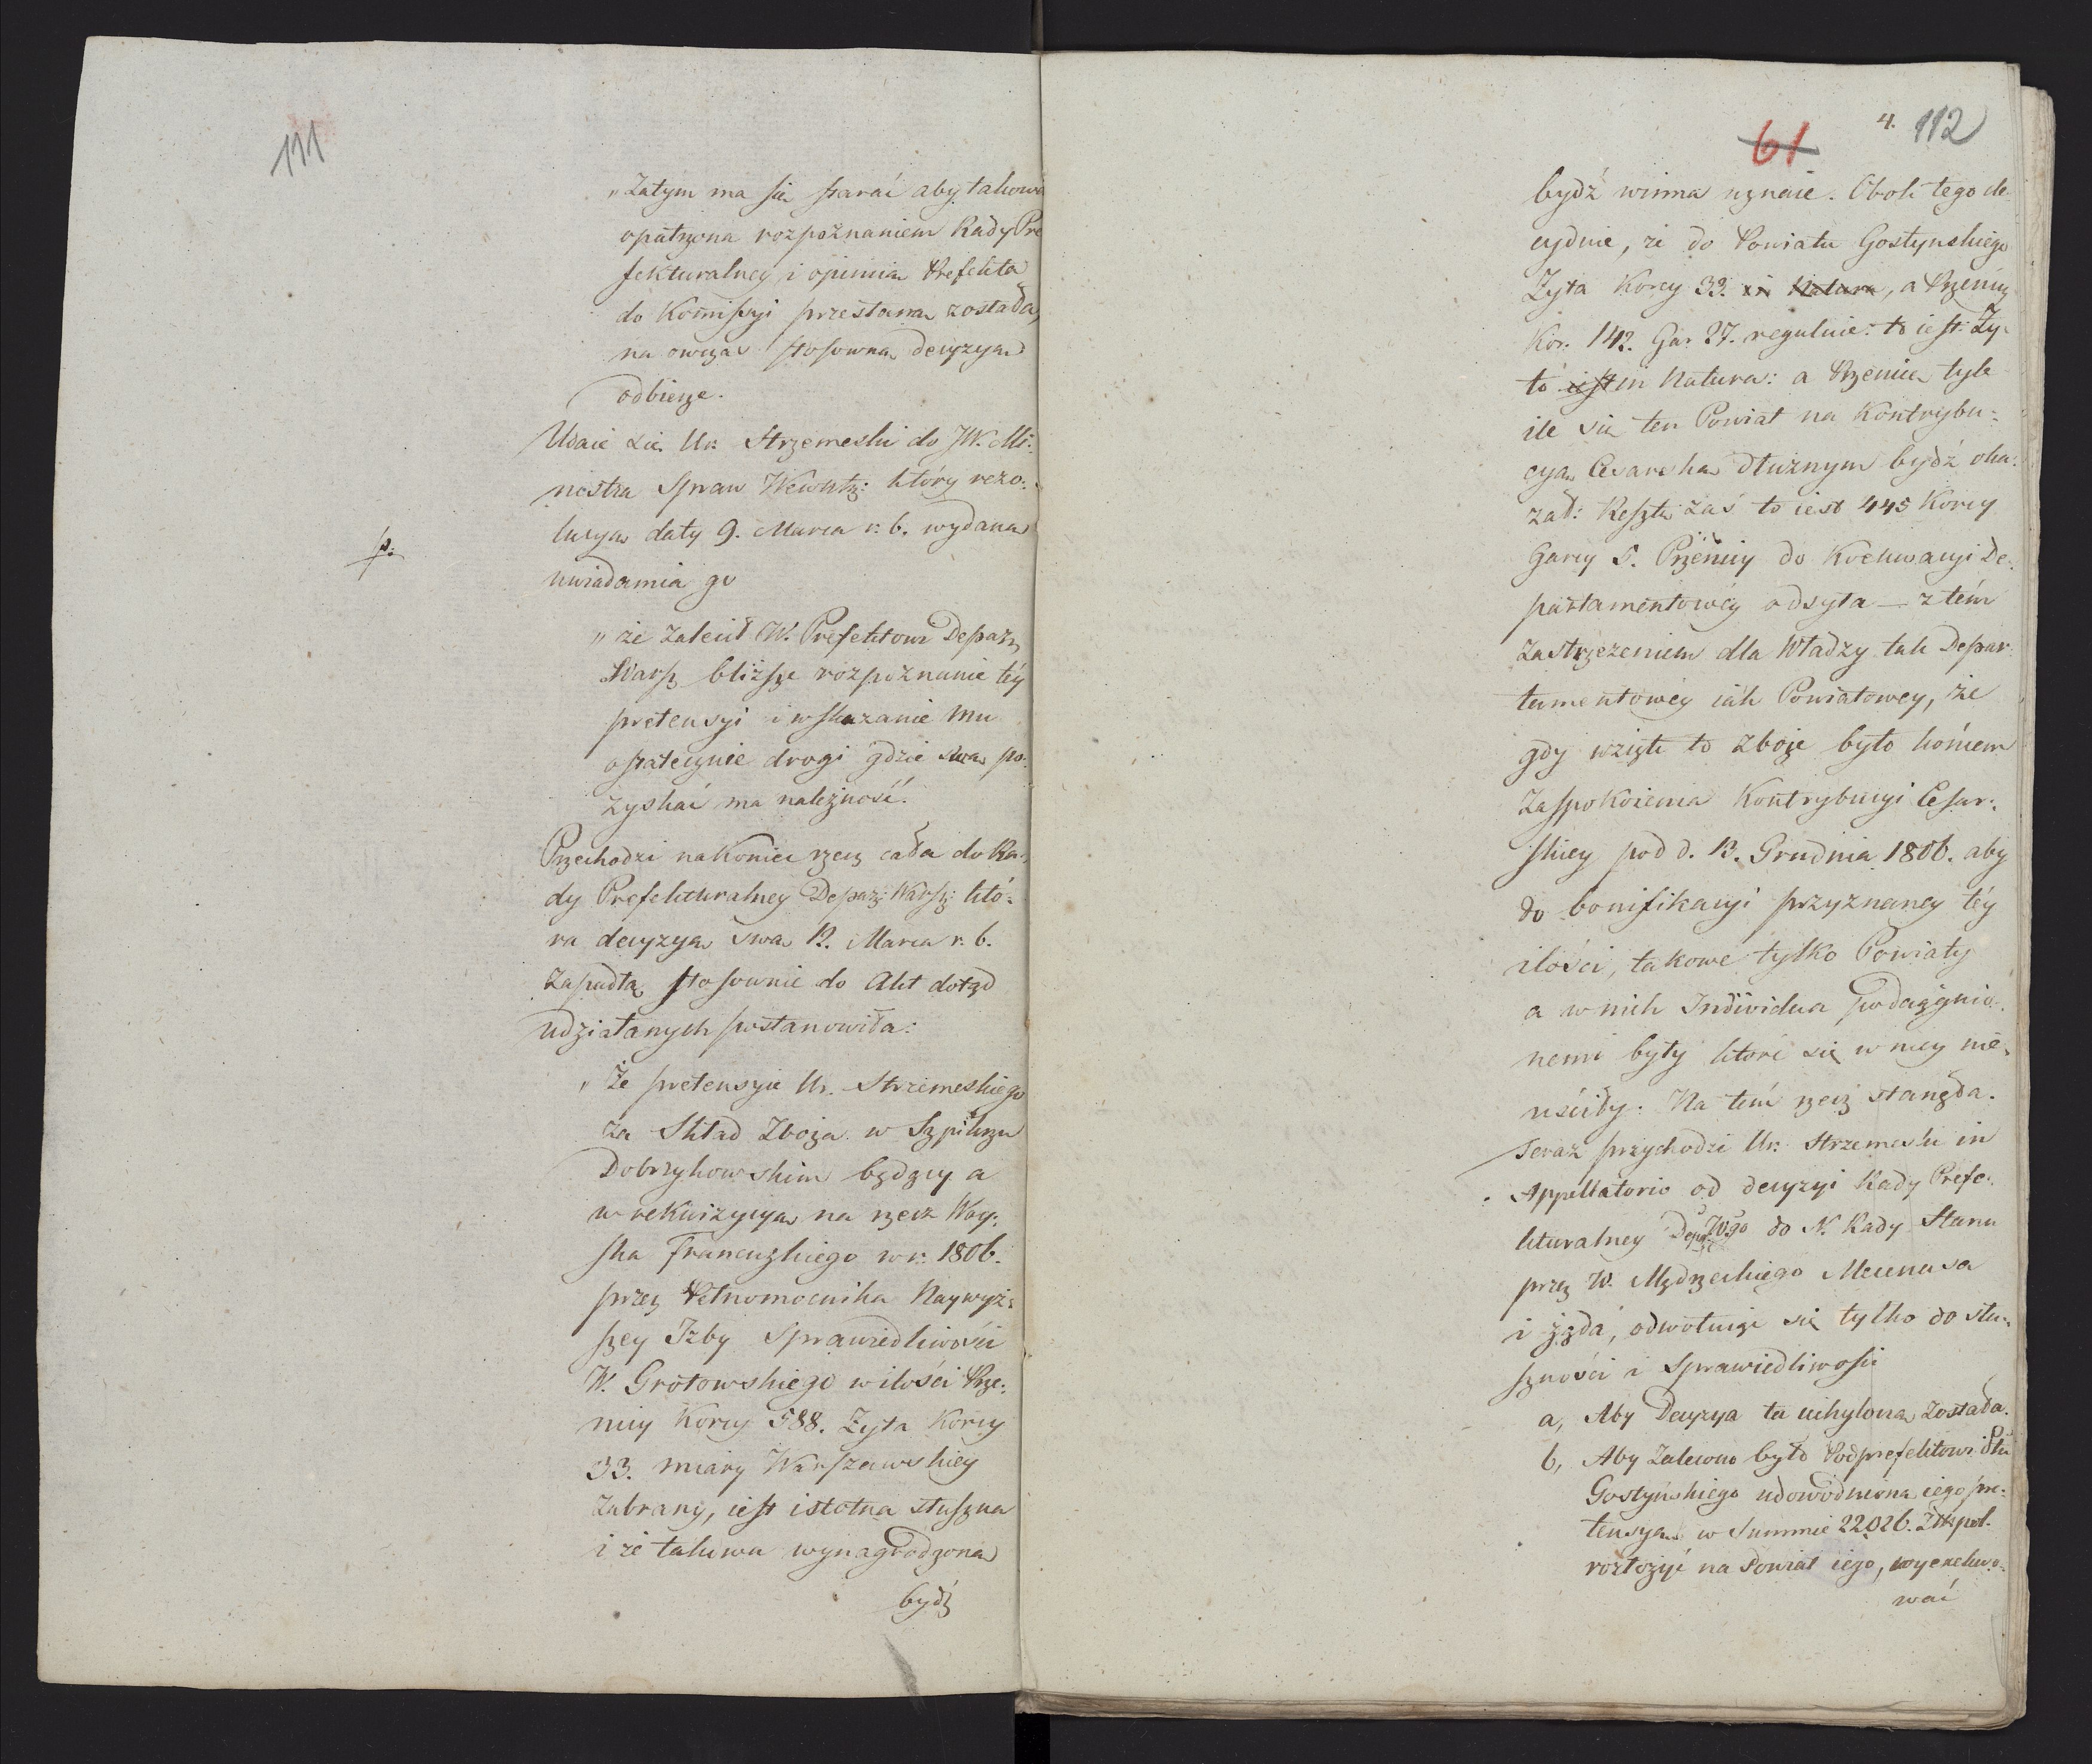 111
„Zatym ma się starać aby takowa
opatrzona rozpoznaniem Rady Pre
fekturalney i opinią Prefekta
do Kommissyi przesłana została,
na owczas stosowną decyzyą
odbierze.
Udaie się Ur. Strzemeski do JW. Mi:
nistra Spraw Wewntz: który rezo:
lucyą daty 9. Marca r. b. wydaną
uwiadamia go
p.
„że zalecił W. Prefektowi Depar:
Warsz bliższe rozpoznanie téy
pretensyi i wskazanie mu
ostatecznie drogi gdzie swą po:
zyskać ma należność.
Przechodzi nakoniec rzecz cała do Ra:
dy Prefekturalney Depar: Warsz: któ:
ra decyzyą swą 12. Marca r. b.
zapadłą stosownie do Akt dotąd
udziałanych postanowiła:
„Że pretensyie Ur. Strzemeskiego
za Skład Zboża w Szpilerzu
Dobrzykowskim będący a
w rekwizycyą na rzecz Woy:
ska Francuzkiego w r. 1806.
przez Pełnomocnika Naywyż:
szey Izby Sprawiedliwości
W. Grotowskiego w ilości Psze:
nicy Korcy 588. Żyta Korcy
33. miary Warszawskiey
zabrany, iest istotna słuszna
i że takowa wynagrodzoną
bydź
4. 112
61
bydź winna uznaie. Obok tego de:
cyduie, że do Powiatu Gostynskiego
Żyta Korcy 33. in Natura, a Pszenicy
Kor. 142. Gar. 27. reguluie: to iest: Ży:
to iest in Natura: a Pszenicę tyle
ile się ten Powiat na Kontrybu:
cyą Cesarską dłużnym bydź oka:
zał: Resztę zaś to iest 445 Korcy
Garcy 5. Pszenicy do Exekwacyi De:
partamentowéy odsyła — z tém
zastrzeżeniem dla Władzy tak Depar:
tamentowéy iak Powiatowey, że
gdy wzięte to zboże było końcem
zaspokoienia Kontrybucyi Cesar:
skiey pod d. 13. Grudnia 1806. aby
do bonifikacyi przyznaney téy
ilości, takowe tylko Powiaty
a w nich Individua podciągnio:
nemi były które się w niey nie
uściły. Na tém rzecz stanęła.
Teraz przychodzi Ur. Strzemeski in
Appellatorio od decyzyi Rady Prefe:
kturalney Dep: Wgo do N. Rady Stanu
przez W. Mędrzeckiego Mecenasa
i żąda, odwołuiąc się tylko do słu:
szności i Sprawiedliwości
a, Aby Decyzya ta uchyloną została.
b, Aby zalecono było Podprefektowi Ptu
Gostyńskiego udowodnioną iego pre:
tensyą w Summie 22026. Złt pol.
rozłożyć na Powiat iego, wyexekwo:
wać